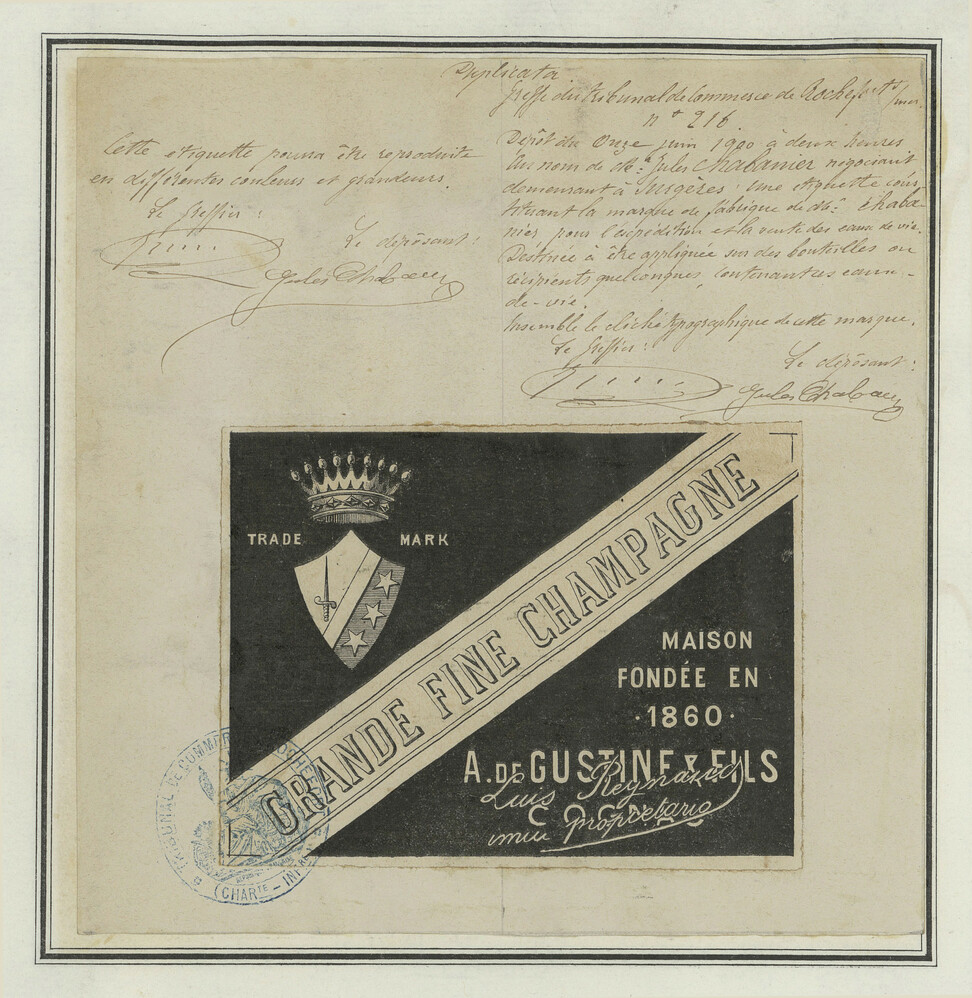 Duplicata
Greffe du tribunal de Commerce de Rochefort s/mer.
n° 216
Dépôt du Onze juin 1900 à deux heures
Au nom de Mr. Jules Chabanier negociant
demeurant à Surgères: une etiquette cons-
tituant la marque de fabrique de Mr. Chaba-
nier pour l'expédition et la vente des eaux de vie.
Destinée à être appliquée sur des bouteilles ou
récipients quelconques, contenant ces eaux-
de-vie.
Ensemble le cliché typographique de cette marque.
Le Greffier:
Le déposant:
Jules Chabanier
Cette etiquette pourra être reproduite
en différentes couleurs et grandeurs.
Le Greffier:
Le déposant:
Jules Chabanier
TRADE MARK
GRANDE FINE CHAMPAGNE
MAISON
FONDÉE EN
·1860·
A. DE GUSTINE & FILS
COGNAC
Luis Reynaud
unico propietario
TRIBUNAL DE COMMERCE ROCHEFORT
(CHARTE - INFRE